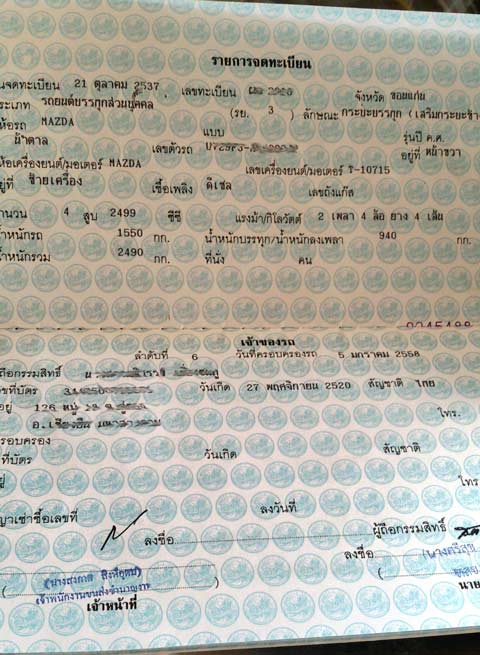 รายการจดทะเบียน
นจดทะเบียน 21 ตุลาคม 2537 เลขทะเบียน จังหวัด ขอนแก่น
ระเภท รถยนต์บรรทุกส่วนบุคคล (รย. 3 ) ลักษณะ กระบะบรรทุก (เสริมกระบะข้าง
ห้อรถ MAZDA แบบ รุ่นปี ค.ศ.
น้ำตาล เลขตัวรถ อยู่ที่ หน้าขวา
ห้อเครื่องยนต์/มอเตอร์ MAZDA เลขเครื่องยนต์/มอเตอร์ T-10715
ยู่ที่ ซ้ายเครื่อง เชื้อเพลิง ดีเซล เลขถังแก๊ส
ำนวน 4 สูบ 2499 ซีซี แรงม้า/กิโลวัตต์ 2 เพลา 4 ล้อ ยาง 4 เส้น
้ำหนักรถ 1550 กก. น้ำหนักบรรทุก/น้ำหนักลงเพลา 940 กก.
้ำหนักรวม 2490 กก. ที่นั่ง คน
เจ้าของรถ
ลำดับที่ 6 วันที่ครอบครองรถ 5 มกราคม 2558
ถือกรรมสิทธิ์
ขที่บัตร วันเกิด 27 พฤศจิกายน 2520 สัญชาติ ไทย
อยู่ 126 หมู่ โทร.
อ.เชียงยืน
รอบครอง
ที่บัตร วันเกิด สัญชาติ
ยู่ โทร
ญาเช่าซื้อเลขที่ ลงวันที่ ผู้ถือกรรมสิทธิ์
ลงชื่อ ลงชื่อ
เจ้าพนักงานขนส่งชำนาญงาน
เจ้าหน้าที่ นาย